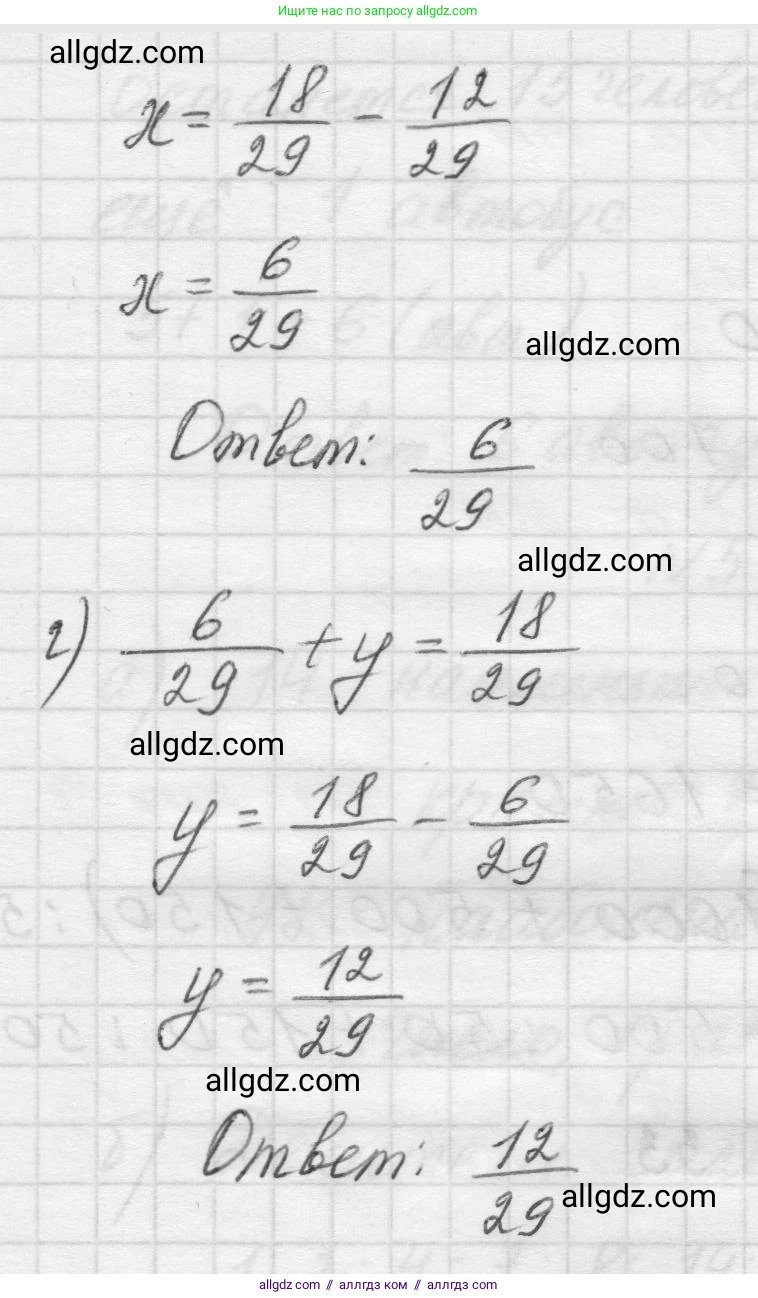 Ищите нас по запросу allgdz.com
allgdz.com
x = 18/29 - 12/29
x = 6/29
allgdz.com
Ответ: 6/29
allgdz.com
г) 6/29 + y = 18/29
allgdz.com
y = 18/29 - 6/29
y = 12/29
allgdz.com
Ответ: 12/29
allgdz.com
allgdz com // аллгдз ком // аллгдз com